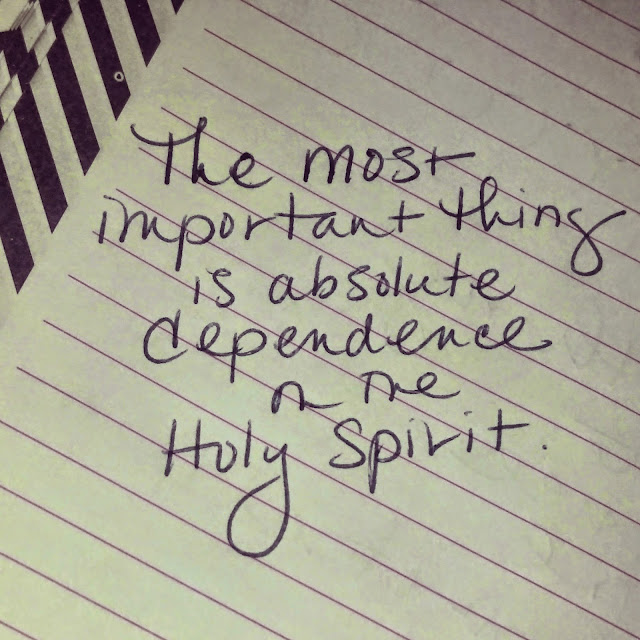 The most
important thing
is absolute
dependence
on the
Holy Spirit.